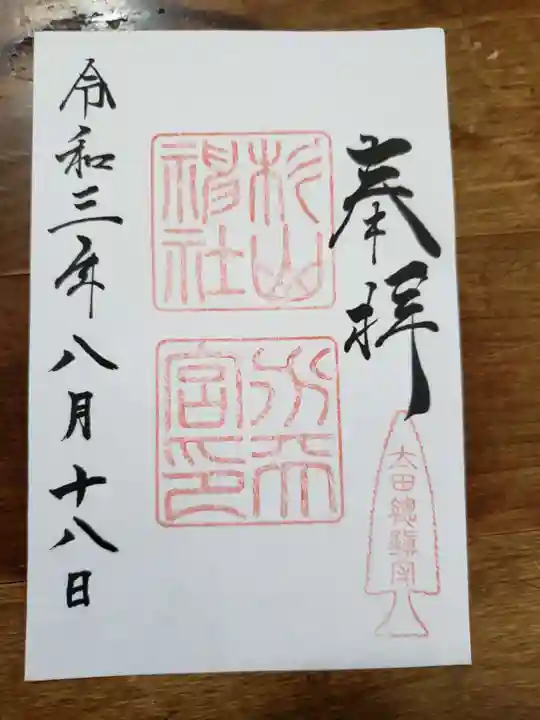 奉拝
太田總鎮守
杉山
神社
宮印
令和三年八月十八日